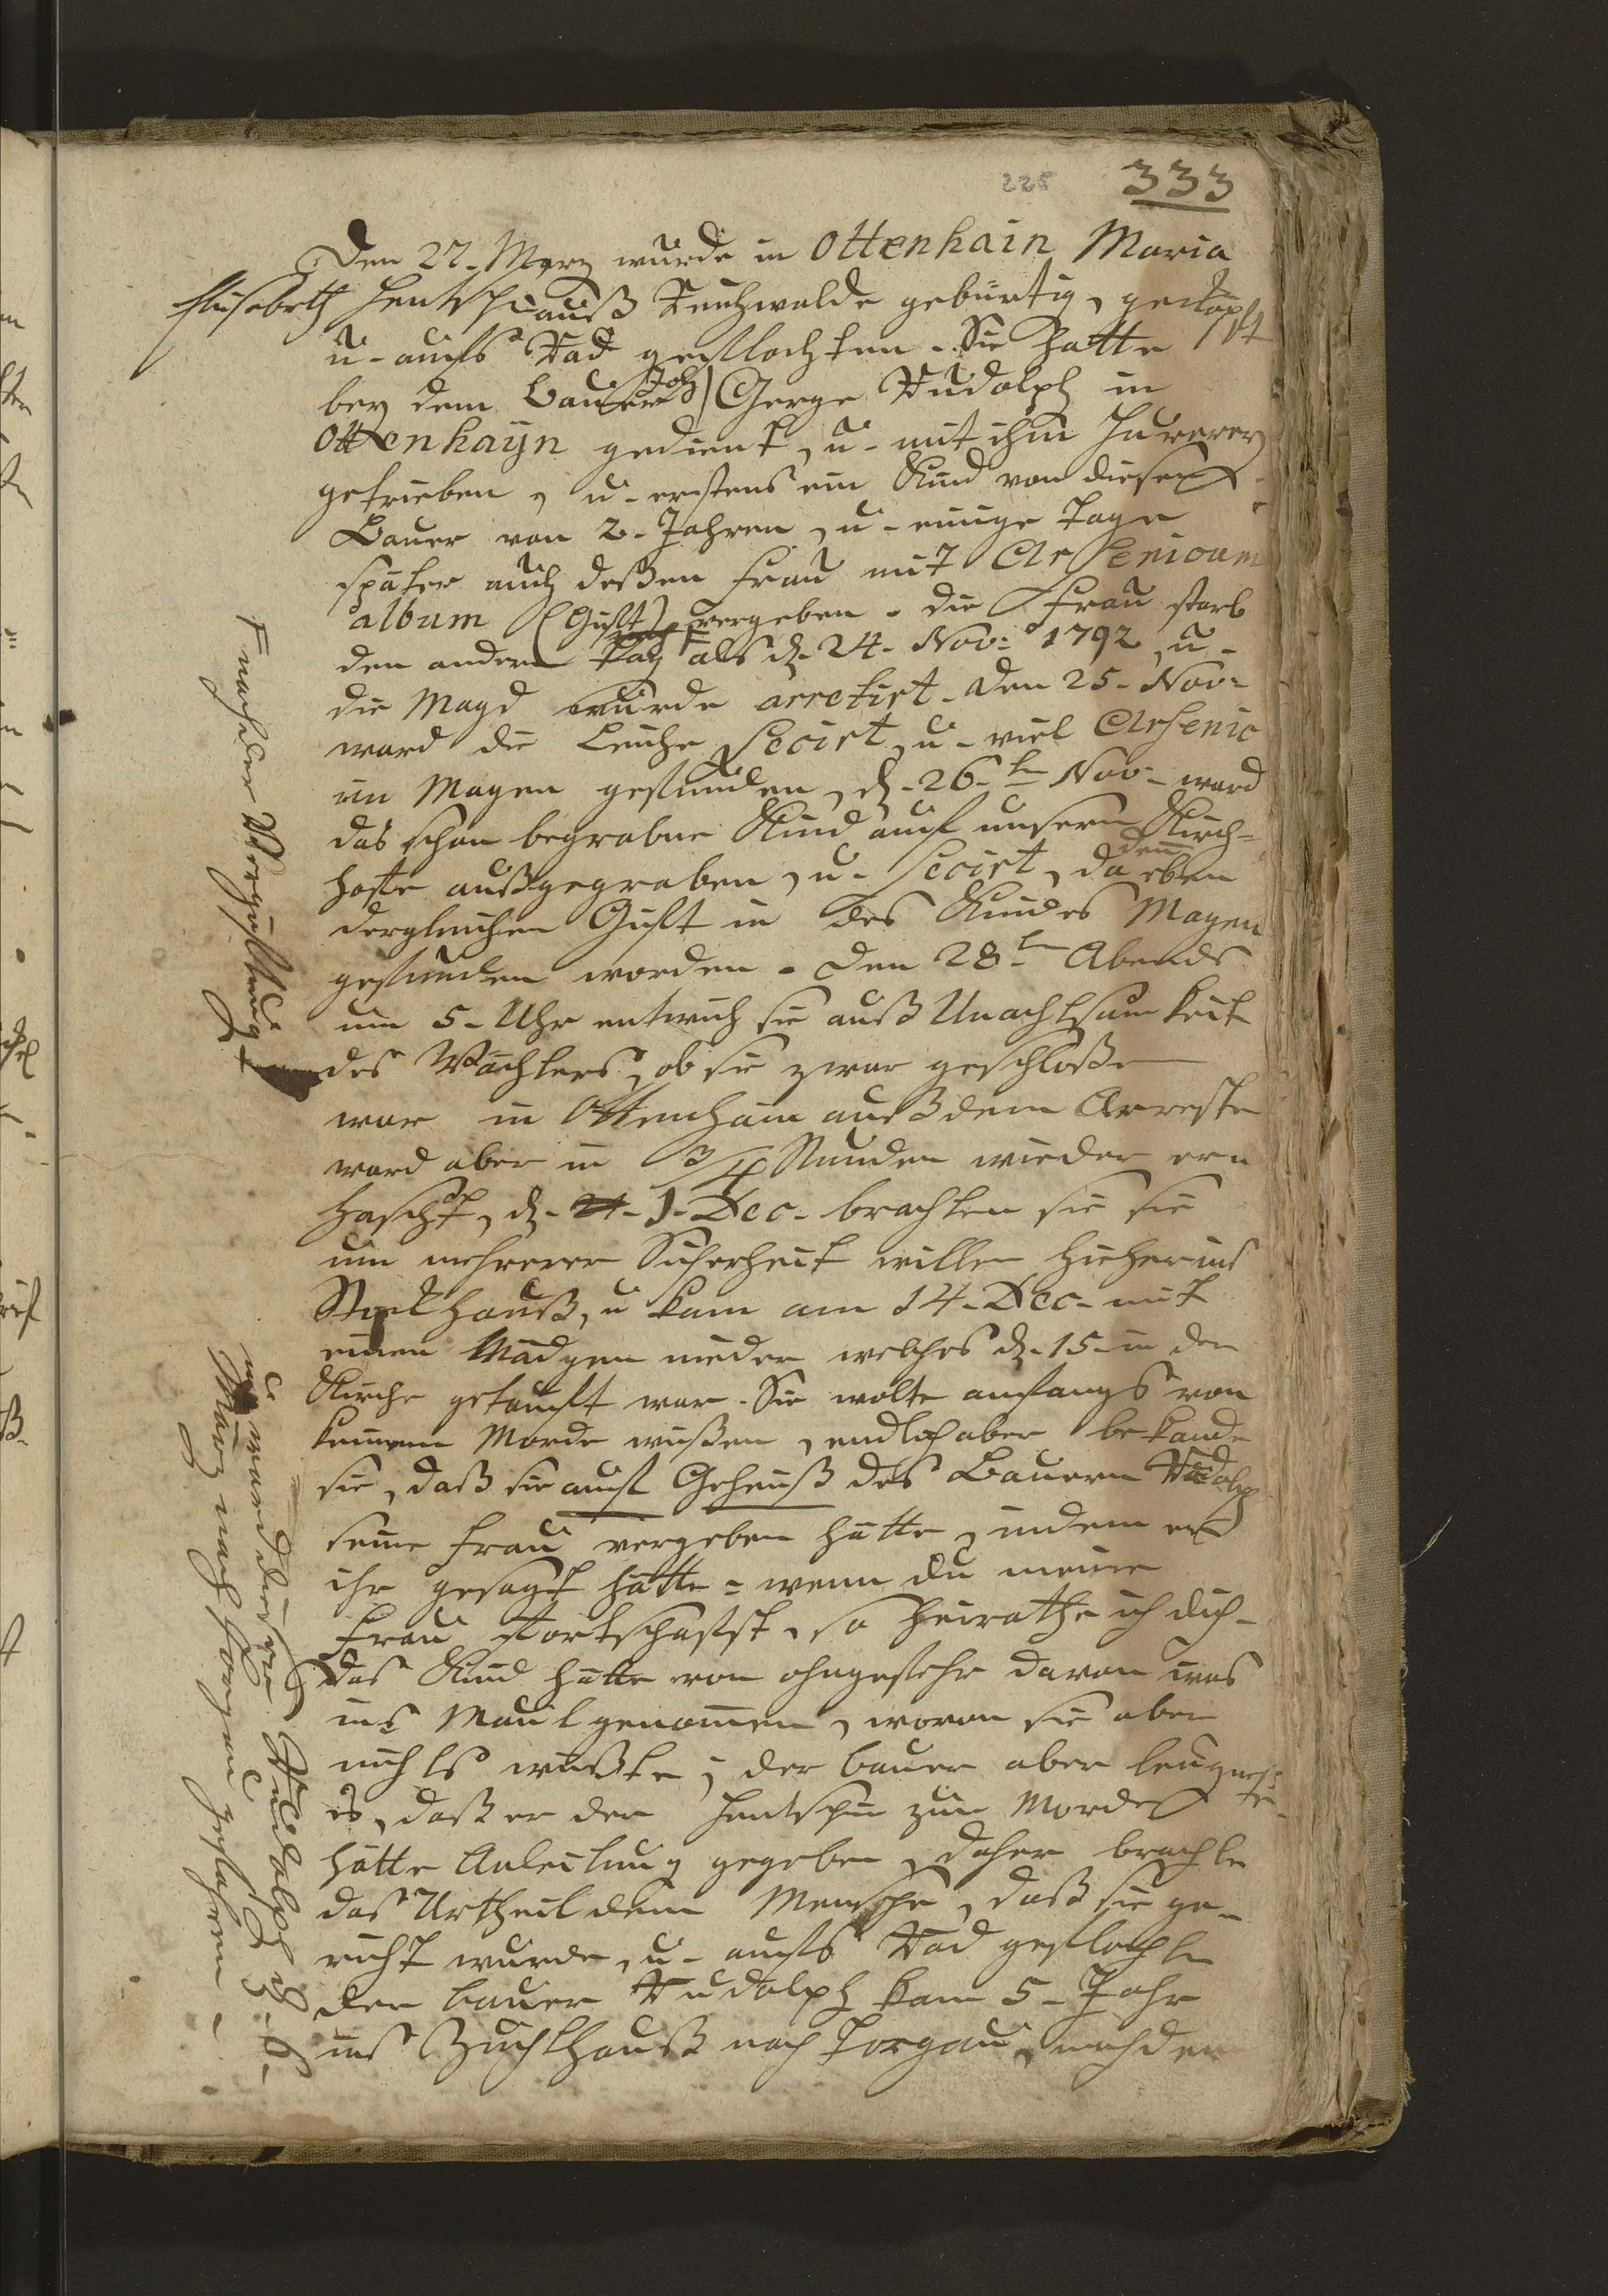 225 333
Den 22. Merz wurde in Ottenhain Maria
Elisabeth Hentschin auß Reichwalde gebürtig, geköpft
u. aufs Rad geflochten. Sie hatte
bey dem Bauer Joh: Gerge Rudolph in
Ottenhayn gedient, u. mit ihm Hurerey
getrieben, u. erstens ein Kind von diesem
Bauer von 2. Jahren, u. einige Tage
später auch deßen Frau mit Arsenicum
album (Gift) vergeben. die Frau starb
den andern Tag als d. 24. Nov: 1792, u.
die Magd wurde arretirt. Den 25. Nov:
ward die Leiche secirt, u. viel Arsenic
im Magen gefunden, d. 26.ten Nov: ward
das schon begrabne Kind auf unsern Kirch=
hoffe außgegraben, u. secirt, da denn eben
dergleichen Gift in des Kindes Magen
gefunden worden. Den 28.ten Abends
um 5. Uhr entwich sie auß Unachtsamkeit
des Wächters, ob sie zwar geschloßen
war in Ottenhain auß dem Arreste
ward aber in 3/4 Stunden wieder er
hascht, d. 1. Dec. brachten sie sie
um mehrerer Sicherheit willen hieher ins
Stockhauß, u kam am 14. Dec. mit
einen Mädgen nieder welches d. 15. in der
Kirche getauft war. Sie wolte anfangs von
keinem Morde wißen, endlich aber bekande
sie, daß sie auf Geheiß des Bauern Rudolph
seine Frau vergeben hätte, indem er
ihr gesagt hätte = wenn du meine
Frau fortschafst, so heirathe ich dich.
Das Kind hätte von ohngefehr davon was
ins Maul genommen, wovon sie aber
nichts wußte; der Bauer aber leugnete
es, daß er der Hentschin zum Morde
hätte Anleitung gegeben, daher brachte
das Urtheil dem Mensche, daß sie ge=
richt wurde, u. aufs Rad geflochten
der Bauer Rudolph kam 5. Jahr
ins Zuchthauß nach Torgau, nachdem
nach der Vergiftung
und ward dieser Rudolph d. 6.
März nach Torgau gefahren.